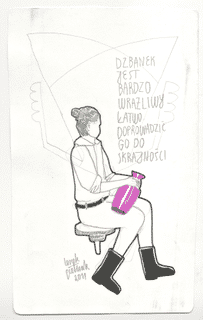 DZBANEK
JEST
BARDZO
WRAŻLIWY
ŁATWO
DOPROWADZIĆ
GO DO
SKRAJNOŚCI